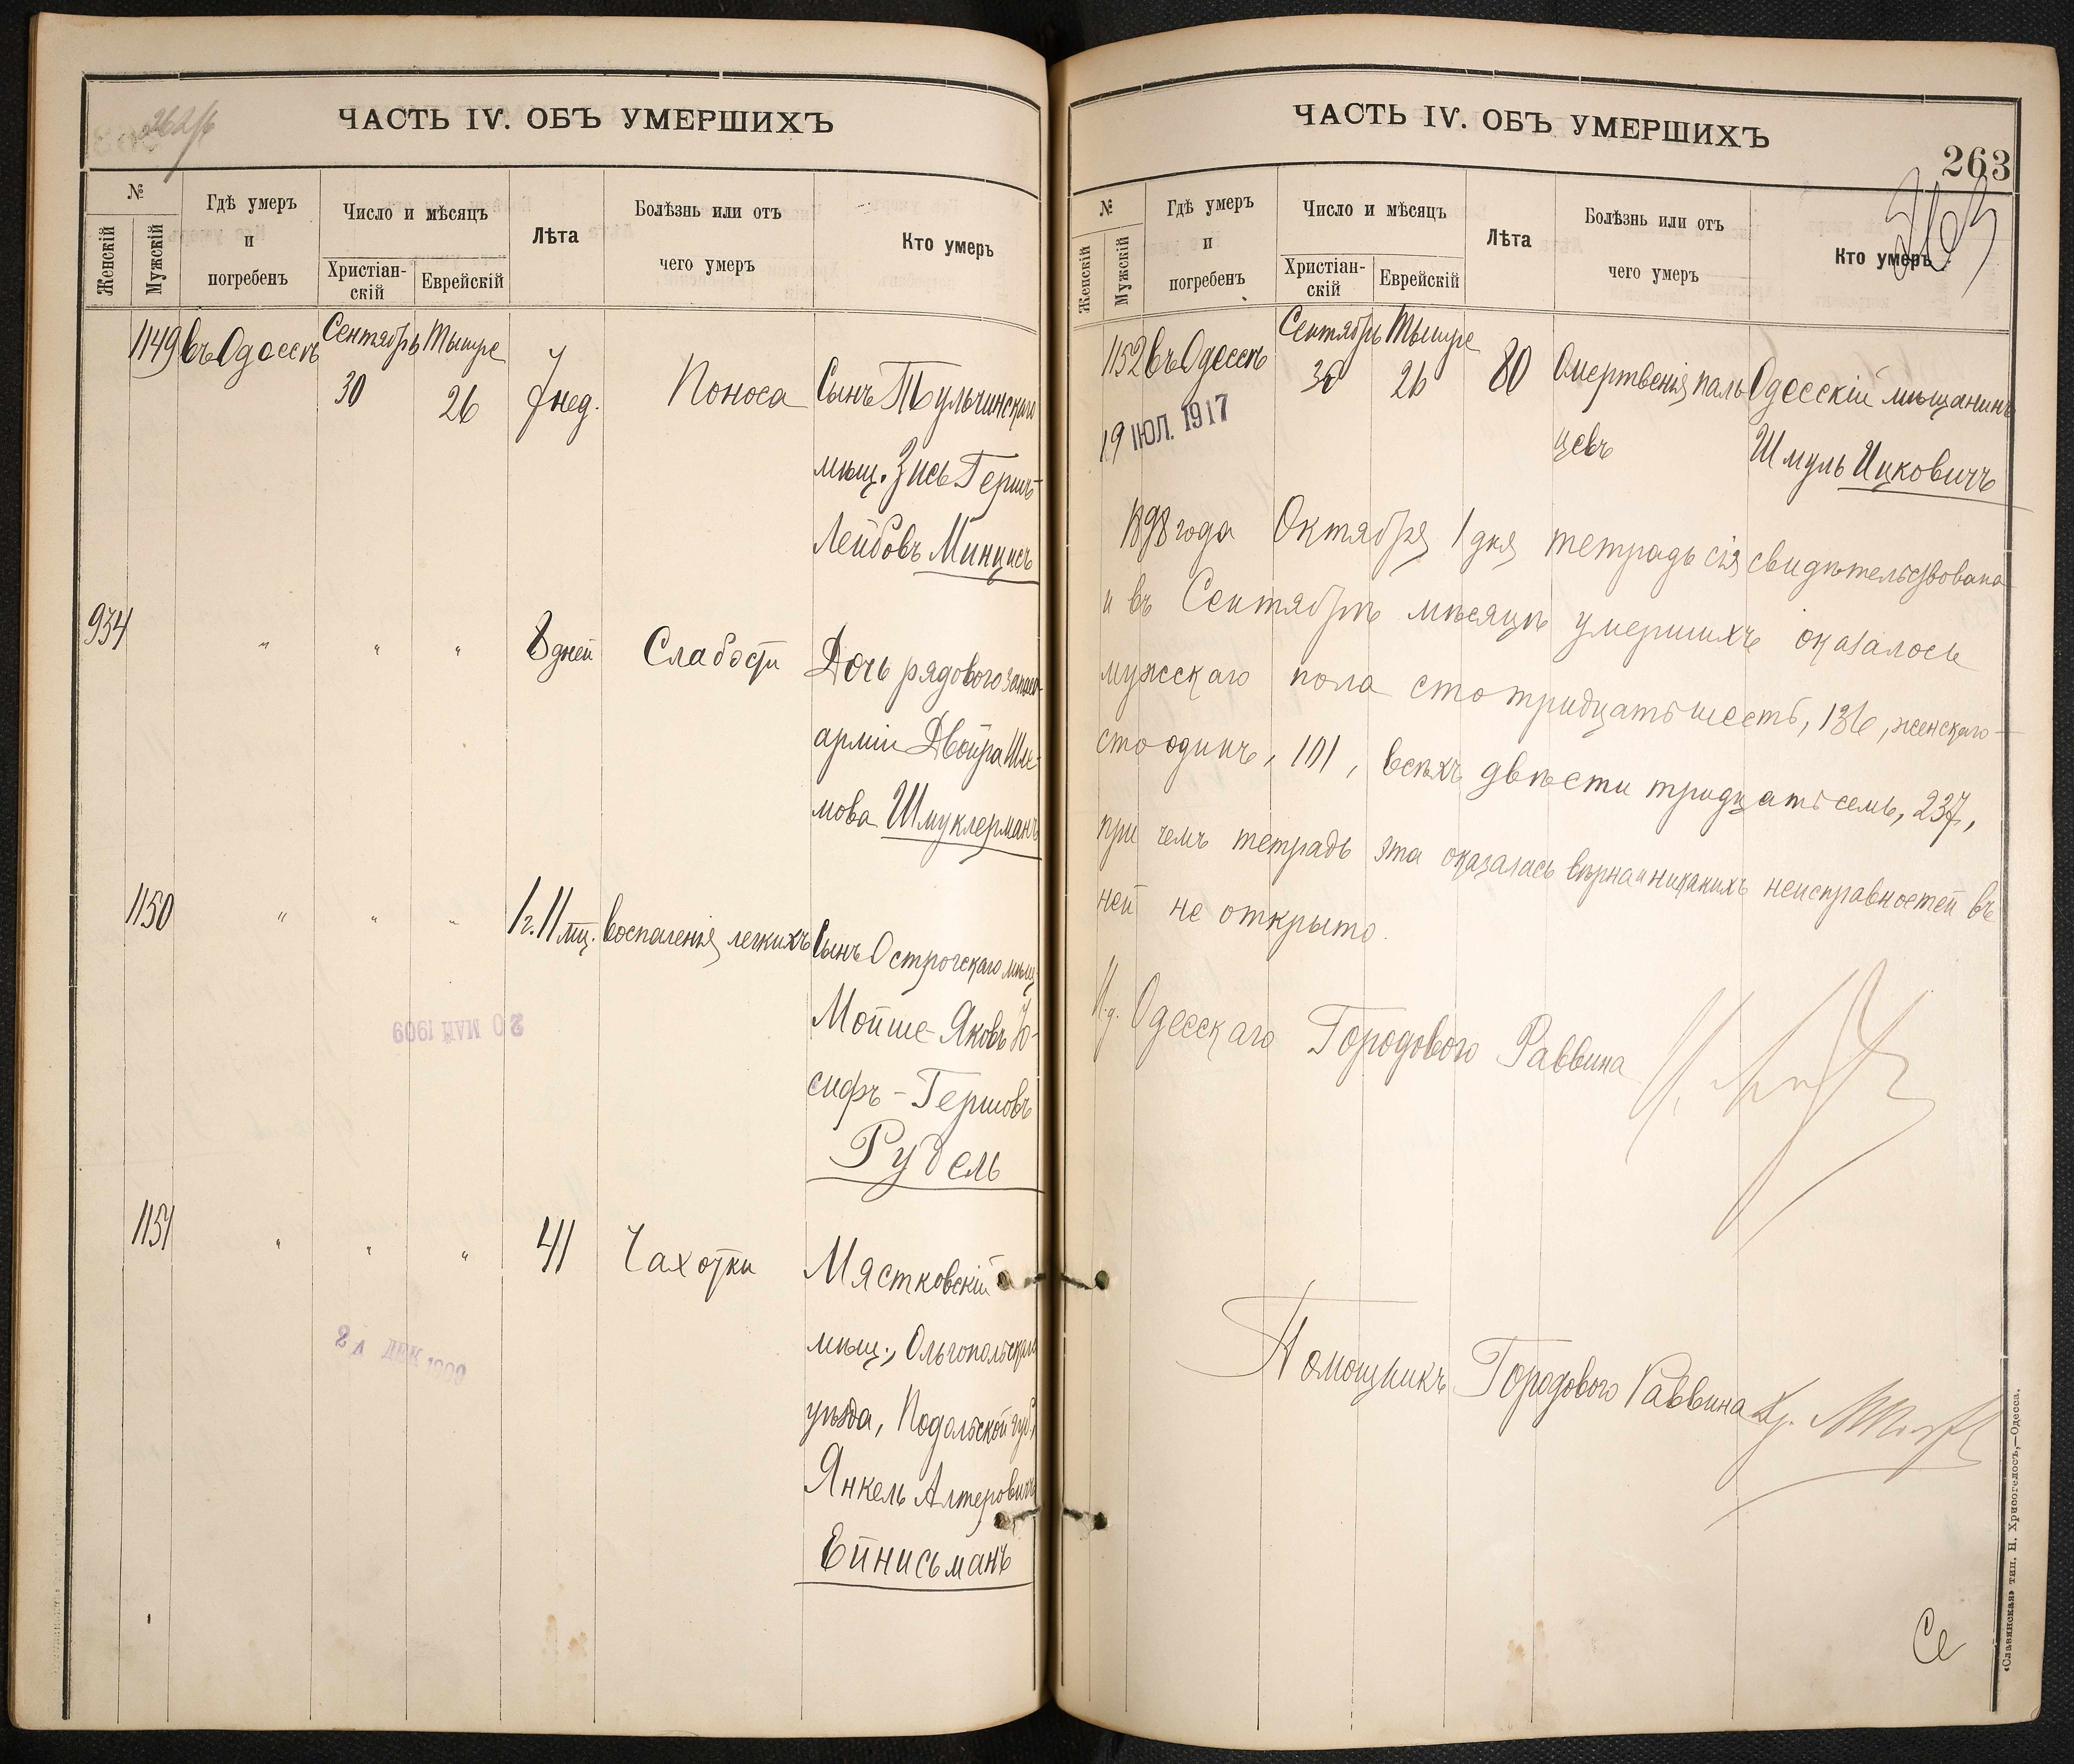 262/б
ЧАСТЬ IV. ОБЪ УМЕРШИХЪ
№
Женскій
Мужскій
Гдѣ умеръ
и
погребенъ
Число и мѣсяцъ
Христіан-
скій
Еврейскій
Лѣта
Болѣзнь или отъ
чего умеръ
Кто умеръ
1149 въ Одессѣ Сентябрь 30 Тышре 26 7 нед. Поноса Сынъ Тульчинскаго
мѣщ. Зись Гершъ-
Лейбовъ Минцисъ
934 " " " 8 дней Слабости Дочь рядового запаса
арміи Двойра Шле-
мова Шмуклерманъ
1150 " " " 1 г. 11 мц. воспаленія легкихъ Сынъ Острогскаго мѣщ.
Мойше-Яковъ Іо-
сифъ-Гершовъ
Рудель
20 МАЙ 1909
1151 " " " 41 Чахотки Мястковскій
мѣщ., Ольгопольскаго
уѣзда, Подольской губ.,
Янкель Алтеровичъ
Ейнисьманъ
ДЕК 1909
ЧАСТЬ IV. ОБЪ УМЕРШИХЪ
263
263
№
Женскій
Мужскій
Гдѣ умеръ
и
погребенъ
Число и мѣсяцъ
Христіан-
скій
Еврейскій
Лѣта
Болѣзнь или отъ
чего умеръ
Кто умеръ
1152 въ Одессѣ Сентябрь 30 Тышре 26 80 Омертвенія паль- Одесскій мѣщанинъ
цевъ Шмуль Ицковичъ
19 ІЮЛ. 1917
1898 года Октября 1 дня тетрадь сія свидѣтельствована
и въ Сентябрѣ мѣсяцѣ умершихъ оказалось
мужскаго пола сто тридцать шесть, 136, женскаго —
сто одинъ, 101, всѣхъ двѣсти тридцать семь, 237,
при чемъ тетрадь эта оказалась вѣрна и никакихъ неисправностей въ
ней не открыто.
И.д. Одесскаго Городового Раввина
Помощникъ Городового Раввина
Се
«Славянская» тип. Н. Хрисогелосъ,—Одесса.